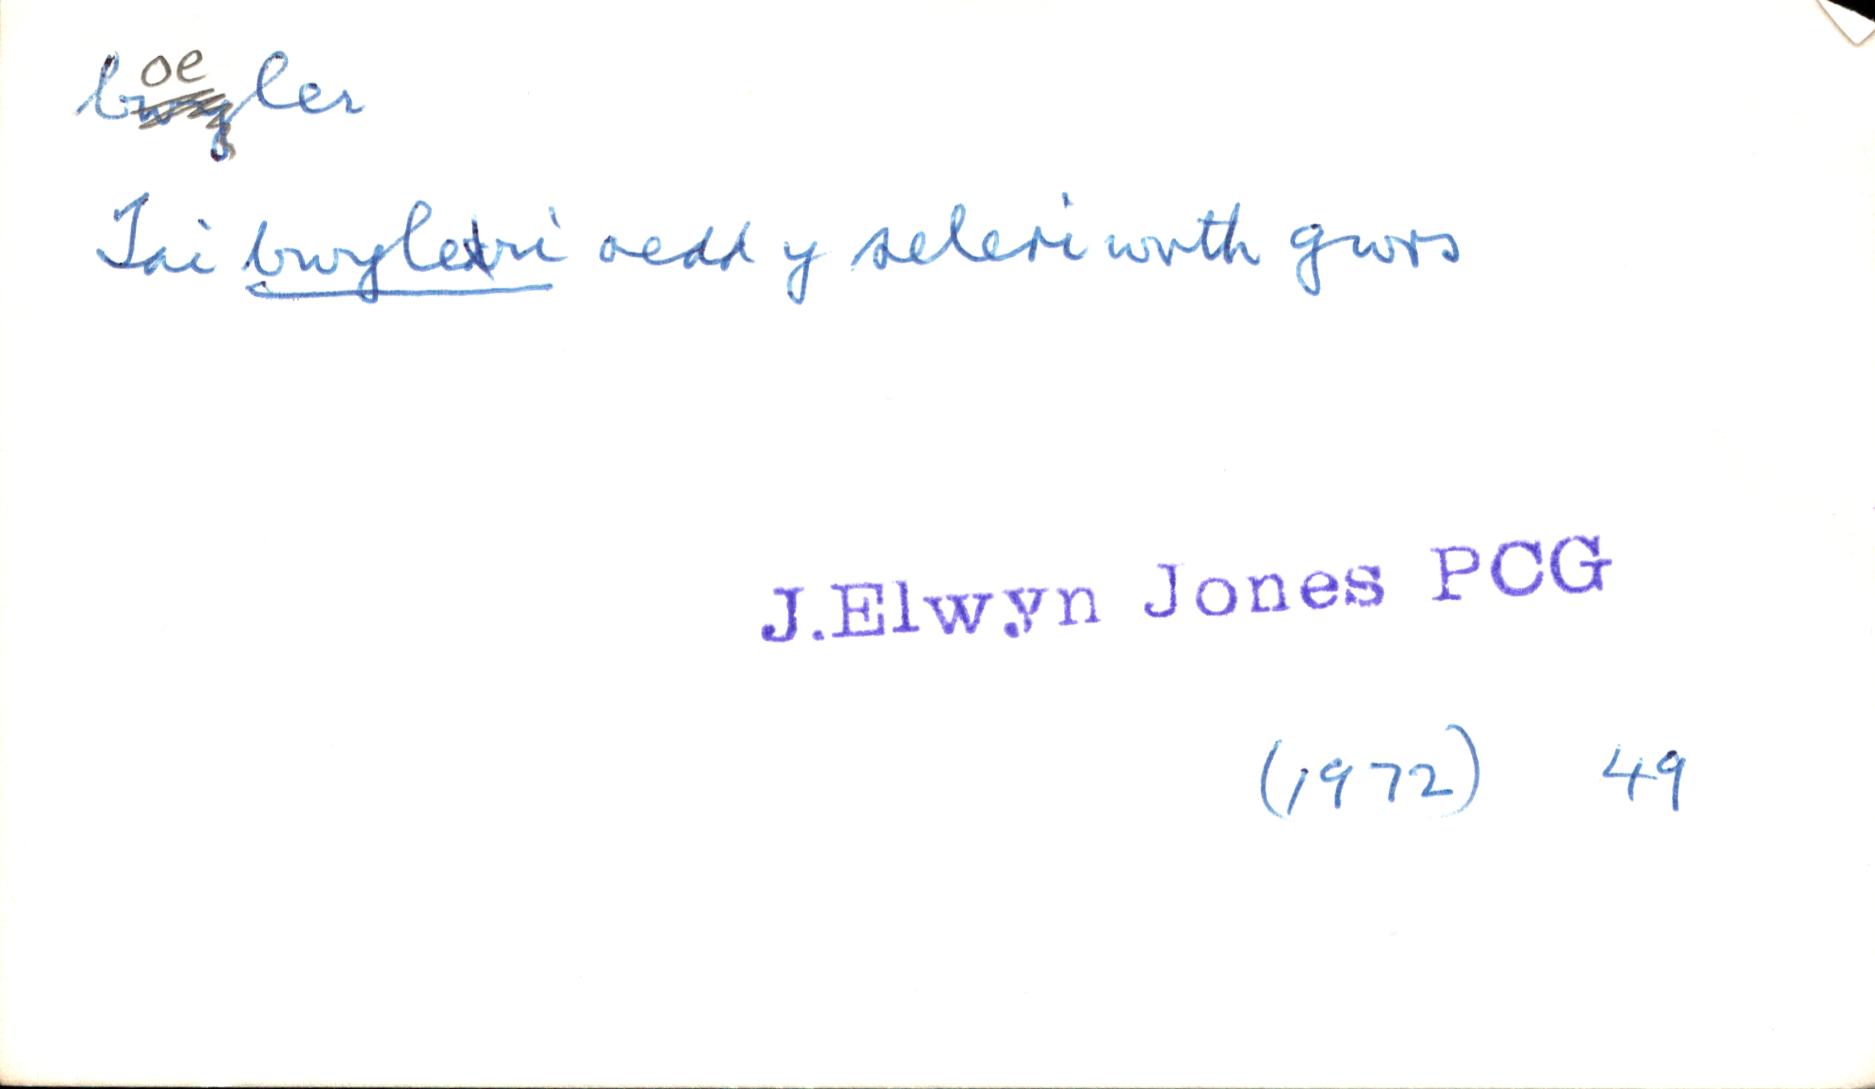 boeler
Tai bwyleri oedd y seleri wrth gwrs
J.Elwyn Jones PCG
(1972) 49